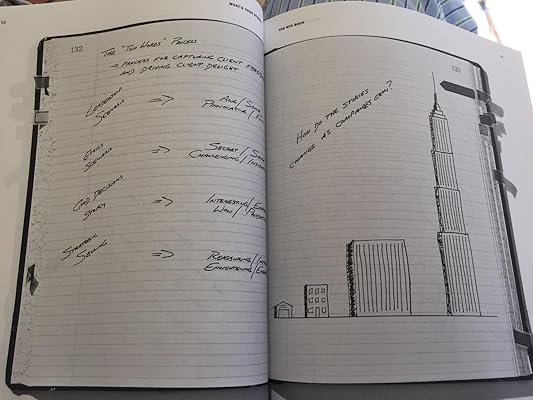 WHAT'S YOUR
132
THE "TWO WORDS" PROCESS
→ PROCESS FOR CAPTURING CLIENT
AND DRIVING CLIENT DELIGHT
LEADERSHIP
SCENARIO ⇒
PROVOCATIVE/
ETHICS
SCENARIO ⇒ SECRET/
CHALLENGING/
GOD DECISIONS
STORY ⇒ INTERESTING/
WOW/
STRATEGIC
SELLING ⇒ REASSURING/
ENLIGHTENING/
THE WIN BOOK
133
HOW DO THE STORIES
CHANGE AS COMPANIES GROW?